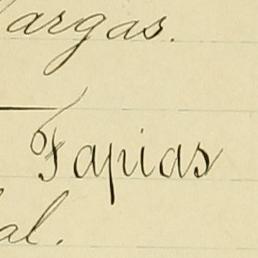 Vargas.
Tapias
al.